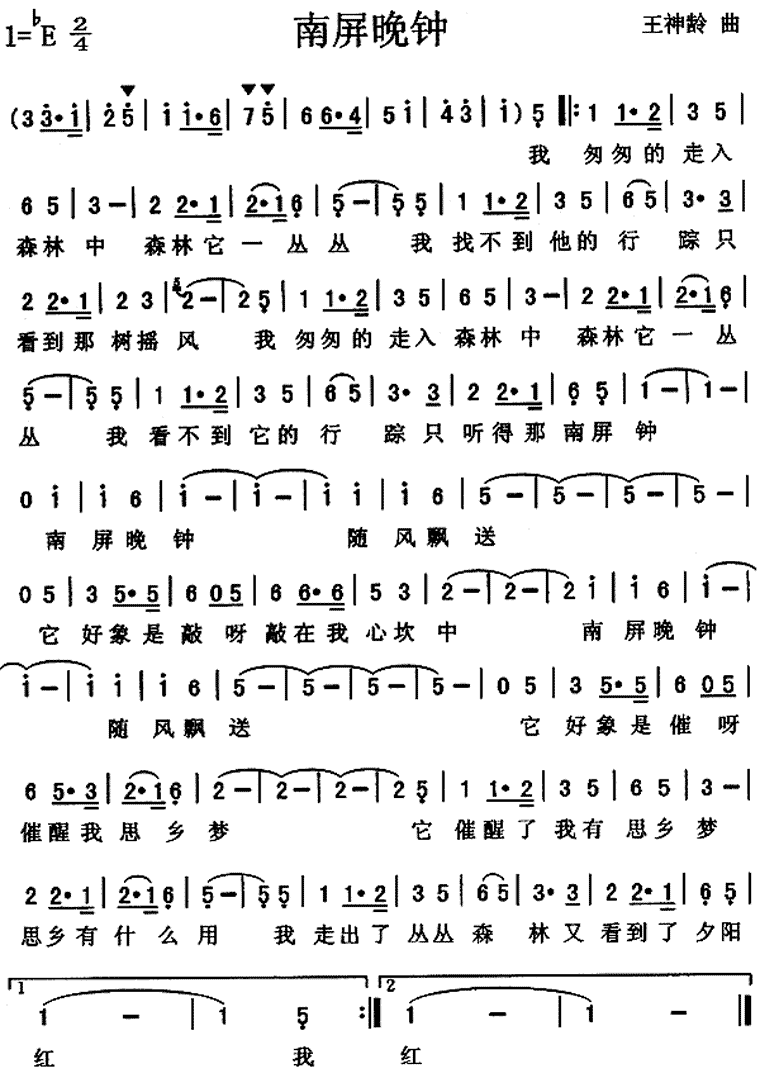 南屏晚钟
1=♭E 2/4
王神龄 曲
(3 3·1|2 5|1 1·6|7 5|6 6·4|5 1|4 3|1) 5|:1 1·2|3 5|
我 匆匆的 走入
6 5|3 -|2 2·1|2·1 6|5 -|5 5|1 1·2|3 5|6 5|3· 3|
森林 中 森林它 一 丛 丛 我 找不到 他的 行 踪只
2 2·1|2 3|5 2 -|2 5|1 1·2|3 5|6 5|3 -|2 2·1|2·1 6|
看到那 树摇 风 我 匆匆的 走入 森林 中 森林它 一 丛
5 -|5 5|1 1·2|3 5|6 5|3· 3|2 2·1|6 5|1 -|1 -|
丛 我 看不到 它的 行 踪只 听得那 南屏 钟
0 1|1 6|1 -|1 -|1 1|1 6|5 -|5 -|5 -|5 -|
南 屏晚 钟 随 风飘 送
0 5|3 5·5|6 0 5|6 6·6|5 3|2 -|2 -|2 1|1 6|1 -|
它 好象是 敲 呀 敲在我 心坎 中 南 屏晚 钟
1 -|1 1|1 6|5 -|5 -|5 -|5 -|0 5|3 5·5|6 0 5|
随 风飘 送 它 好象是 催 呀
6 5·3|2·1 6|2 -|2 -|2 -|2 5|1 1·2|3 5|6 5|3 -|
催醒我 思 乡 梦 它 催醒了 我有 思乡 梦
2 2·1|2·1 6|5 -|5 5|1 1·2|3 5|6 5|3· 3|2 2·1|6 5|
思乡有 什 么 用 我 走出了 丛丛 森 林又 看到了 夕阳
1 2
1 -|1 5:|1 -|1 -||
红 我 红